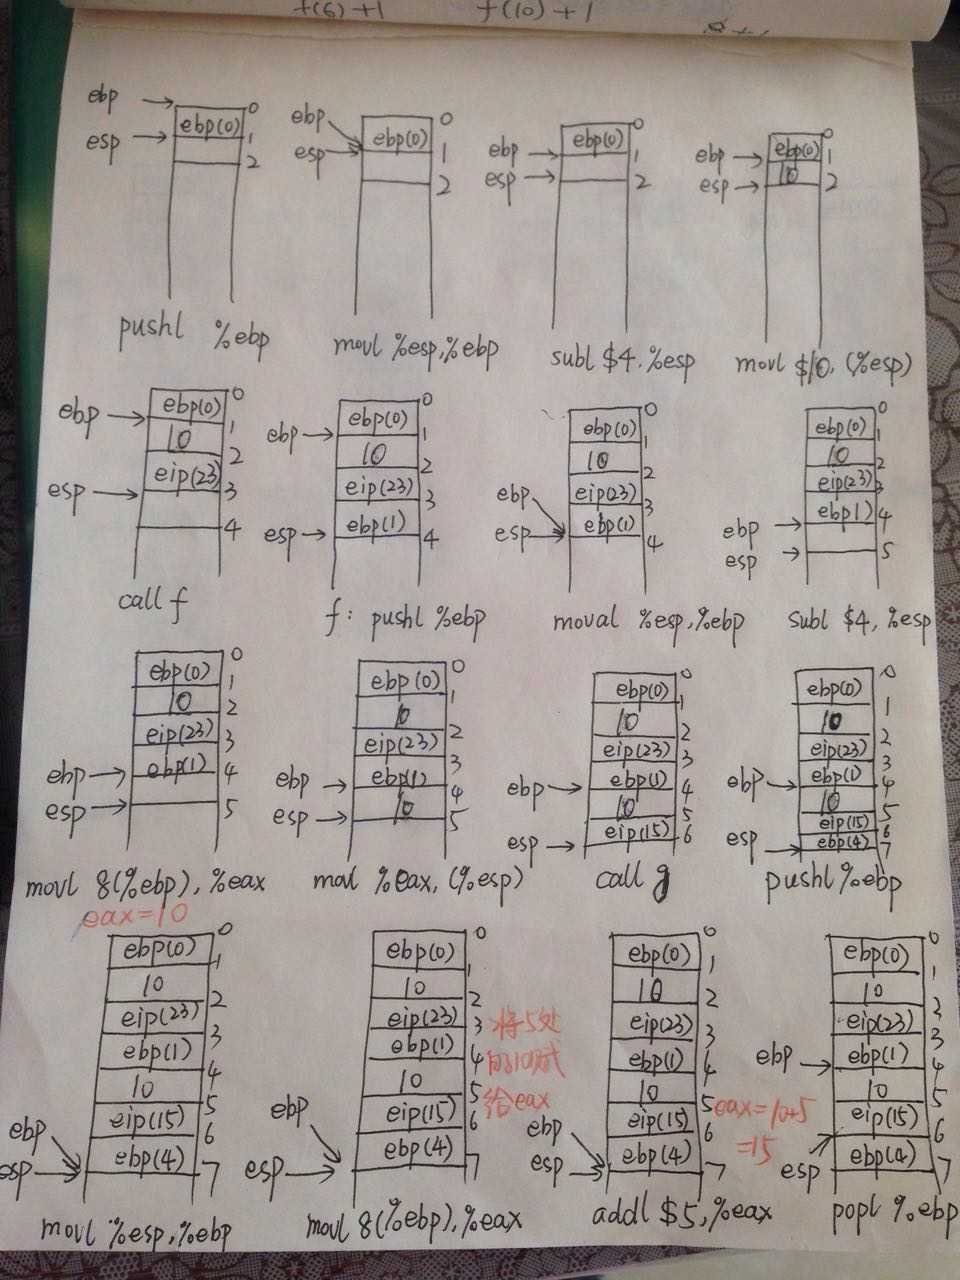 f(6)+1 f(10)+1
ebp
esp
ebp(0)
0
1
2
pushl %ebp
ebp
esp
ebp(0)
0
1
2
movl %esp,%ebp
ebp
esp
ebp(0)
0
1
2
subl $4.%esp
ebp
esp
ebp(0)
10
0
1
2
movl $10,(%esp)
ebp
esp
ebp(0)
10
eip(23)
0
1
2
3
4
call f
ebp
esp
ebp(0)
10
eip(23)
ebp(1)
0
1
2
3
4
f: pushl %ebp
ebp
esp
ebp(0)
10
eip(23)
ebp(1)
0
1
2
3
4
moval %esp,%ebp
ebp
esp
ebp(0)
10
eip(23)
ebp1)
0
1
2
3
4
5
subl $4,%esp
ebp
esp
ebp(0)
10
eip(23)
ebp(1)
0
1
2
3
4
5
movl 8(%ebp),%eax
eax=10
ebp
esp
ebp(0)
10
eip(23)
ebp(1)
10
0
1
2
3
4
5
movl %eax,(%esp)
ebp
esp
ebp(0)
10
eip(23)
ebp(1)
10
eip(15)
0
1
2
3
4
5
6
call g
ebp
esp
ebp(0)
10
eip(23)
ebp(1)
10
eip(15)
ebp(4)
0
1
2
3
4
5
6
7
pushl %ebp
ebp
esp
ebp(0)
10
eip(23)
ebp(1)
10
eip(15)
ebp(4)
0
1
2
3
4
5
6
7
movl %esp,%ebp
ebp
esp
ebp(0)
10
eip(23)
ebp(1)
10
eip(15)
ebp(4)
0
1
2
3
4
5
6
7
将5处
的10赋
给eax
movl 8(%ebp),%eax
ebp
esp
ebp(0)
10
eip(23)
ebp(1)
10
eip(15)
ebp(4)
0
1
2
3
4
5
6
7
eax=10+5
=15
addl $5,%eax
ebp
esp
ebp(0)
10
eip(23)
ebp(1)
10
eip(15)
ebp(4)
0
1
2
3
4
5
6
7
popl %ebp